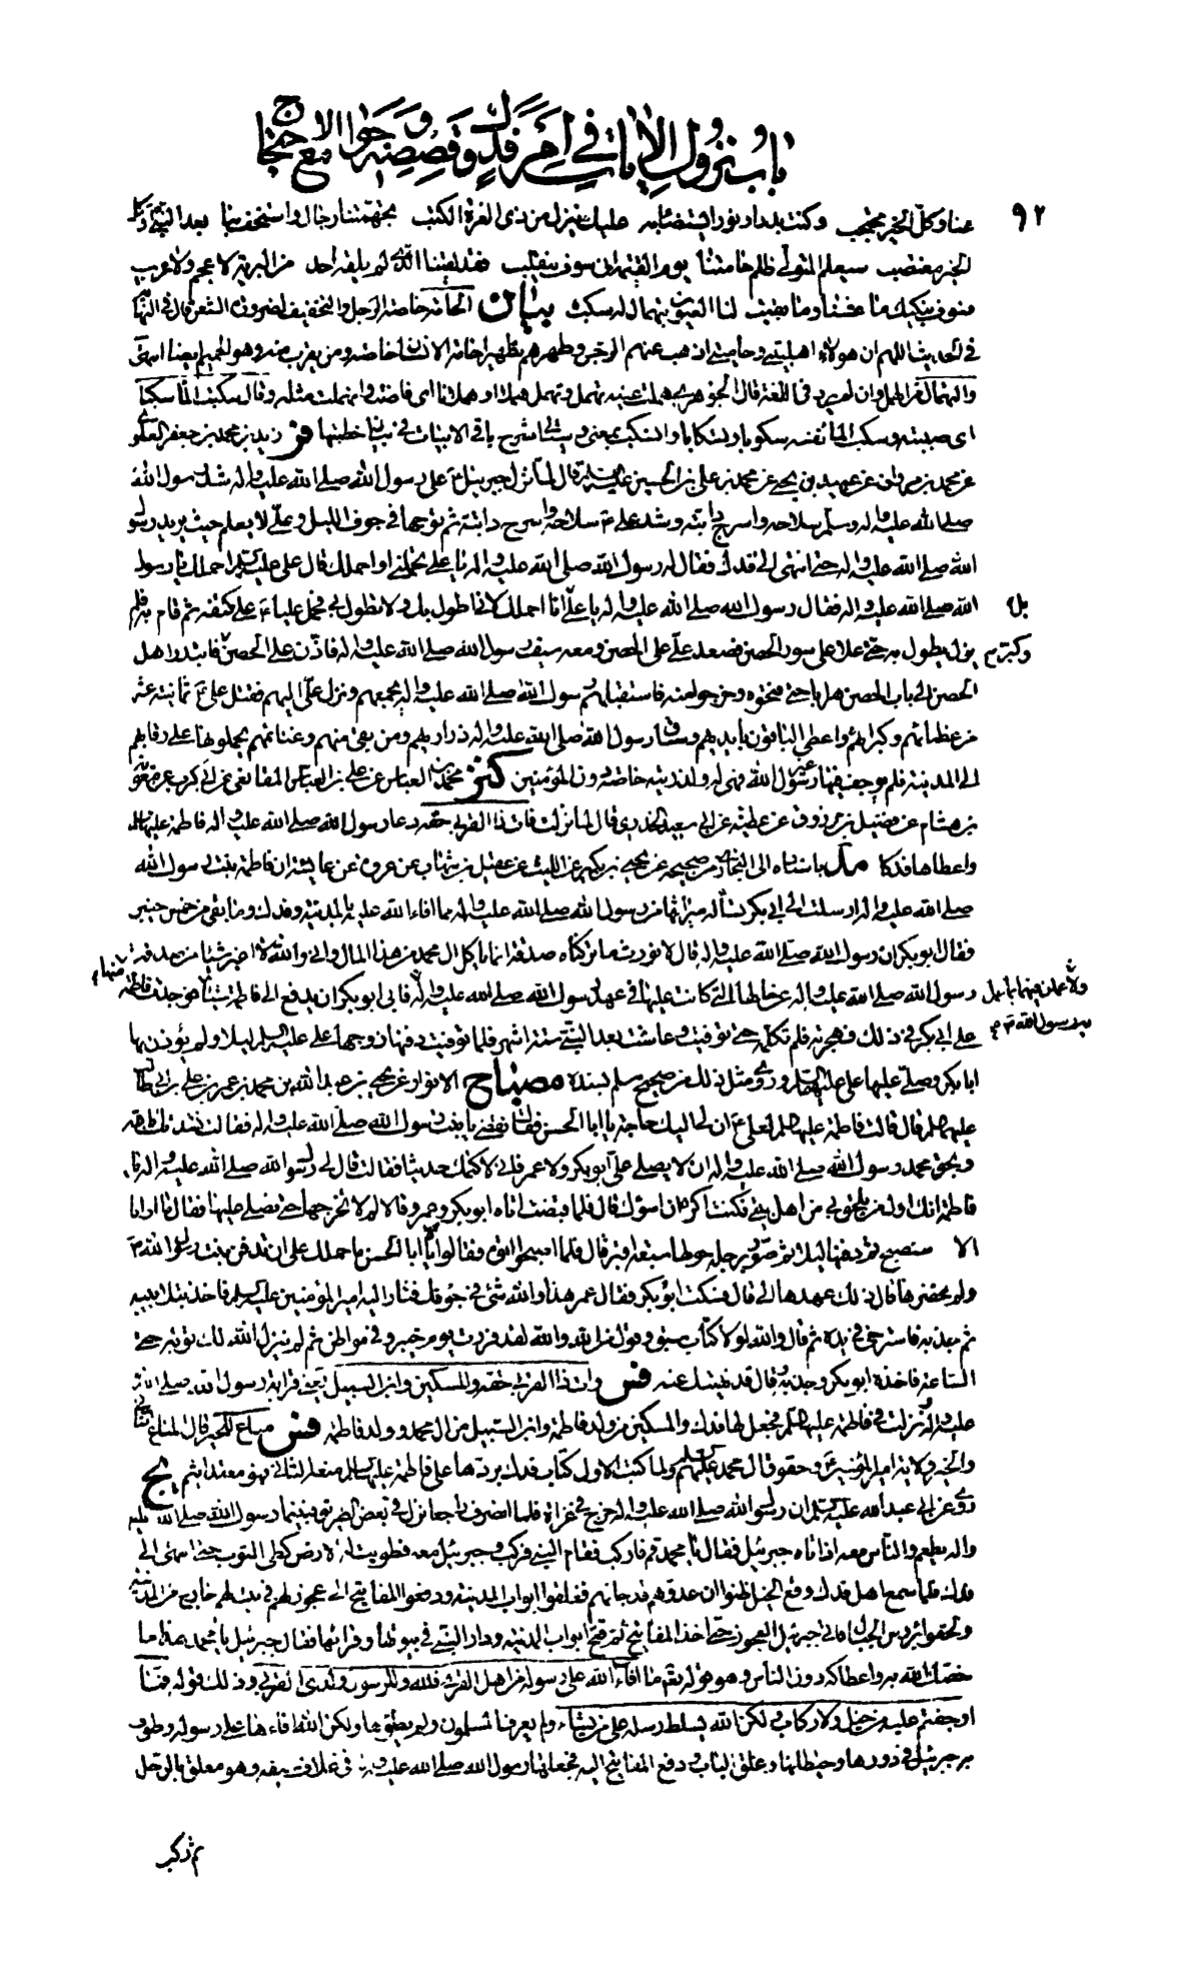 باب نزول الآيات في أمر فدك وقصصه وجوامع الاحتجاج
٩٢
عنا وكل الخير محتجب وكنت بدرا ونورا يستضاء به عليك ينزل من ذي العزة الكتب تجهمتنا رجال واستخف بنا بعد النبي وكل
الخير مغتصب سيعلم المتولي ظلم حامتنا يوم القيمة أنى سوف ينقلب فقد لقينا الذي لم يلقه أحد من البرية لا عجم ولا عرب
فسوف نبكيك ما عشنا وما بقيت لنا العيون بتهمال له سكب بيان الحامة خاصة الرجل والتخفيف لضرورة الشعر قال في النهاية
في الحديث اللهم ان هولاء اهل بيتي وحامتي اذهب عنهم الرجس وطهرهم تطهيرا حامة الانسان خاصته ومن يقرب منه وهو الحميم ايضا انتهى
والتهمال من الهمل وان لم يرد في اللغة قال الجوهري هملت عينه تهمل وتهمل هملا وهملانا اى فاضت وانهملت مثله وقال سكبت الماء سكبا
اى صببته وسكب الماء نفسه سكوبا وتسكابا وانسكب بمعنى وسيأتي شرح باقي الابيات في بيان خطبتها فر زيد بن محمد بن جعفر العلوي
عن محمد بن مروان عن عبيد بن يحيى عن محمد بن علي بن الحسين عليه السلام قال لما نزل جبرئيل ع على رسول الله صلى الله عليه واله شد رسول الله
صلى الله عليه واله وسلم سلاحه واسرج دابته وشد علي ع سلاحه واسرج دابته ثم توجها في جوف الليل وعلي لا يعلم حيث يريد رسول
الله صلى الله عليه واله حتى انتهى الى فدك فقال له رسول الله صلى الله عليه واله يا علي تحملني او احملك قال علي عليه السلام احملك يا رسول
الله صلى الله عليه واله فقال رسول الله صلى الله عليه واله يا علي انا احملك لاني اطول بك ولا تطول بي فحمل عليا ع على كتفه ثم قام به فلم
بل
يزل يطول به حتى علا على سور الحصن فصعد علي على الحصن ومعه سيف رسول الله صلى الله عليه واله فاذن على الحصن فابتدر اهل
وكبر م
الحصن الى باب الحصن هرابا حتى فتحوه وخرجوا منه فاستقبلهم رسول الله صلى الله عليه واله بجمعهم ونزل علي اليهم فقتل علي ع ثمانية عشر
من عظمائهم وكبرائهم واعطى الباقون بايديهم وساق رسول الله صلى الله عليه واله ذراريهم ومن بقي منهم وغنائمهم يحملونها على رقابهم
الى المدينة فلم يوجف فيها غير رسول الله فهي له ولذريته خاصة دون المؤمنين كنز محمد بن العباس عن علي بن العباس المقانعي عن ابي كريب عن معوية
بن هشام عن فضيل بن مرزوق عن عطية عن ابي سعيد الخدري قال لما نزلت فات ذا القربى حقه دعا رسول الله صلى الله عليه واله فاطمة عليها السلام
واعطاها فدكا مد باسناده الى البخاري من صحيحه عن يحيى بن بكير عن الليث عن عقيل بن شهاب عن عروة عن عايشة ان فاطمة بنت رسول الله
صلى الله عليه واله ارسلت الى ابي بكر تسأله ميراثها من رسول الله صلى الله عليه واله مما افاء الله عليه بالمدينة وفدك وما بقي من خمس خيبر
فقال ابو بكر ان رسول الله صلى الله عليه واله قال لا نورث ما تركناه صدقة انما ياكل ال محمد من هذا المال واني والله لا اغير شيئا من صدقة
رسول الله صلى الله عليه واله عن حالها التي كانت عليها في عهد رسول الله صلى الله عليه واله فابى ابو بكر ان يدفع الى فاطمة شيئا فوجدت فاطمة
ولأعملن فيها بما عمل
به رسول الله ص م
منها م
على ابي بكر في ذلك فهجرته فلم تكلمه حتى توفيت وعاشت بعد النبي ستة اشهر فلما توفيت دفنها زوجها علي عليه السلام ليلا ولم يؤذن بها
ابا بكر وصلى عليها علي عليه السلام وروى مثل ذلك من صحيح مسلم بسنده مصباح الانوار عن يحيى بن عبد الله بن محمد بن عمر بن علي بن ابي طالب
عليهم السلام قال قالت فاطمة عليها السلام لعلي ع ان لي اليك حاجة يا ابا الحسن فقال تقضى يا بنت رسول الله صلى الله عليه واله فقالت نشدتك بالله
وبحق محمد رسول الله صلى الله عليه واله ان لا يصلي علي ابو بكر ولا عمر فاني لا كتمتك حديثا فقالت قال لي رسول الله صلى الله عليه واله يا
فاطمة انك اول من يلحق بي من اهل بيتي فكنت اكره ان اسوئك قال فلما قبضت اتاه ابو بكر وعمر وقالا لم لا تخرجها حتى نصلي عليها فقال ما ارانا
الا سنصبح ثم دفنها ليلا ثم صور برجله حولها سبعة اقبر قال فلما اصبحوا اتوه فقالوا يا ابا الحسن ما حملك على ان تدفن بنت رسول الله ص
ولم نحضرها قال ذلك عهدها الي قال فسكت ابو بكر فقال عمر هذا والله شئ في جوفك فثار اليه امير المؤمنين عليه السلام فاخذ بتلابيبه
ثم جذبه فاسترخى في يده ثم قال والله لولا كتاب سبق وقول من الله والله لقد فررت يوم خيبر وفي مواطن ثم لم ينزل الله لك توبة حتى
الساعة فاخذه ابو بكر وجذبه وقال قد نهيتك عنه فس وات ذا القربى حقه والمسكين وابن السبيل يعني قرابة رسول الله صلى الله
عليه واله ونزلت في فاطمة عليها السلام فجعل لها فدك والمسكين من ولد فاطمة وابن السبيل من ال محمد وولد فاطمة فس مناع للخير قال المناع الثاني
والخير ولاية امير المؤمنين وحقوق ال محمد عليهم السلام ولما كتب الاول كتاب فدك بردها على فاطمة عليها السلام منعه الثاني فهو معتد اثيم يج
روى عن ابي عبد الله عليه السلام ان رسول الله صلى الله عليه واله خرج في غزاة فلما انصرف راجعا نزل في بعض الطريق فبينما رسول الله صلى الله عليه
واله يطعم والناس معه اذ اتاه جبرئيل فقال يا محمد قم فاركب فقام النبي فركب وجبرئيل معه فطويت له الارض كطي الثوب حتى انتهى الى
فدك فلما سمع اهل فدك وقع الخيل ظنوا ان عدوهم قد جاءهم فغلقوا ابواب المدينة ودفعوا المفاتيح الى عجوز لهم في بيت لهم خارج من المدينة
ولحقوا برؤس الجبال فاتى جبرئيل العجوز حتى اخذ المفاتيح ثم فتح ابواب المدينة ودار النبي في بيوتها وقراها فقال جبرئيل يا محمد هذا ما
خصك الله به واعطاكه دون الناس وهو قوله تعالى ما افاء الله على رسوله من اهل القرى فلله وللرسول ولذى القربى وذلك قوله فما
اوجفتم عليه من خيل ولا ركاب ولكن الله يسلط رسله على من يشاء ولم يعرف المسلمون ولم يطؤها ولكن الله افاءها على رسوله وطوف
به جبرئيل في دورها وحيطانها وغلق الباب ودفع المفاتيح اليه فجعلها رسول الله صلى الله عليه واله في غلاف سيفه وهو معلق بالرحل
ثم ركب